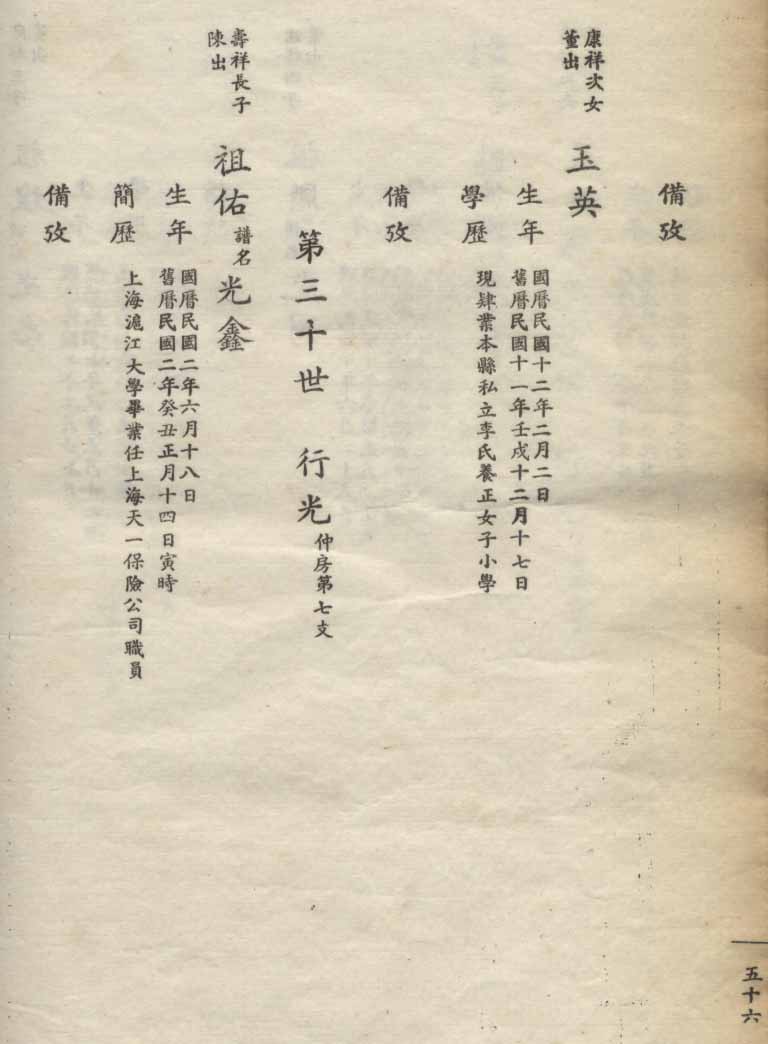 備攷
康祥次女
董出
玉英
生年
國曆民國十二年二月二日
舊曆民國十一年壬戌十二月十七日
學歷 現肄業本縣私立李氏養正女子小學
備攷
第三十世 行光 仲房第七支
壽祥長子
陳出
祖佑 譜名 光鑫
生年
國曆民國二年六月十八日
舊曆民國二年癸丑正月十四日寅時
簡歷 上海滬江大學畢業任上海天一保險公司職員
備攷
五十六